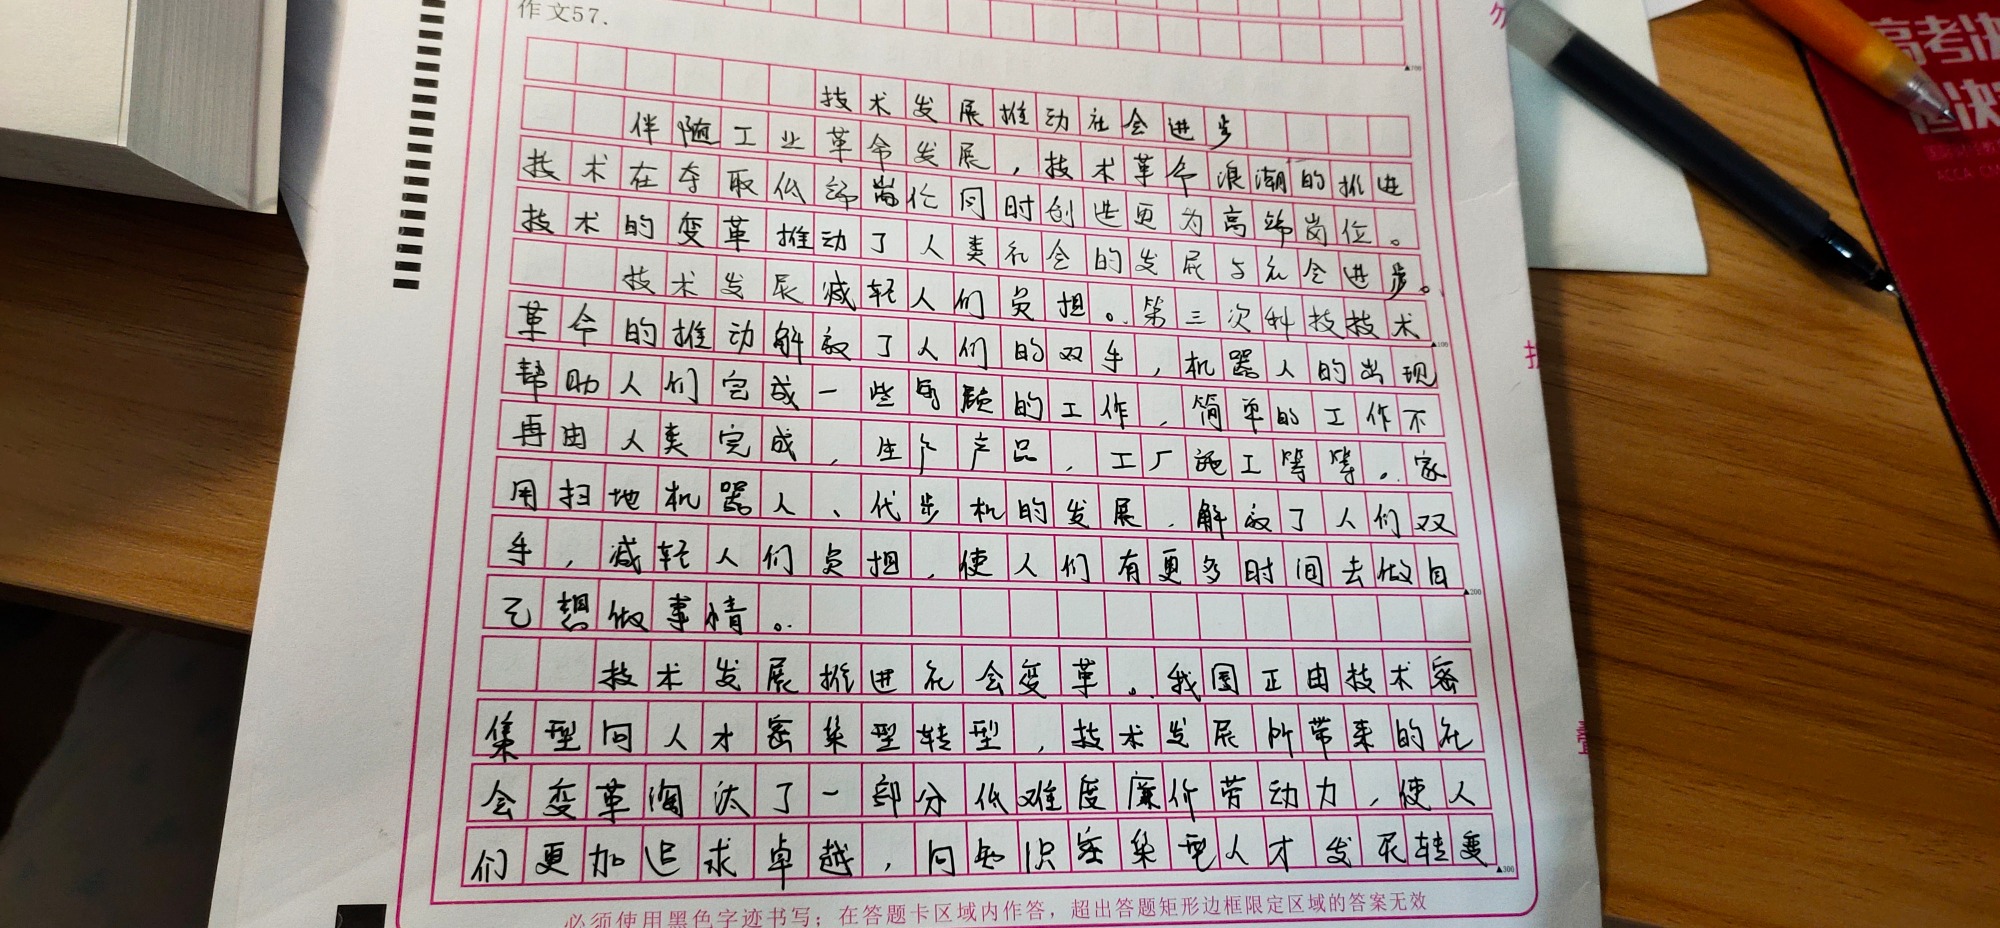 作文57.
技术发展推动社会进步
伴随工业革命发展，技术革命浪潮的推进
技术在夺取低端岗位同时创造更为高端岗位。
技术的变革推动了人类社会的发展与社会进步。
技术发展减轻人们负担。第三次科技技术
革命的推动解放了人们的双手，机器人的出现
帮助人们完成一些的工作，简单的工作不
再由人类完成，生产产品，工厂施工等等。家
用扫地机器人、代步机的发展，解放了人们双
手，减轻人们负担，使人们有更多时间去做自
己想做事情。
技术发展推进社会变革。我国正由技术密
集型向人才密集型转型，技术发展所带来的社
会变革淘汰了一部分低难度廉价劳动力，使人
们更加追求卓越，向知识密集型人才发展转变
▲100
▲200
▲300
必须使用黑色字迹书写；在答题卡区域内作答，超出答题矩形边框限定区域的答案无效
高考决
ACCA